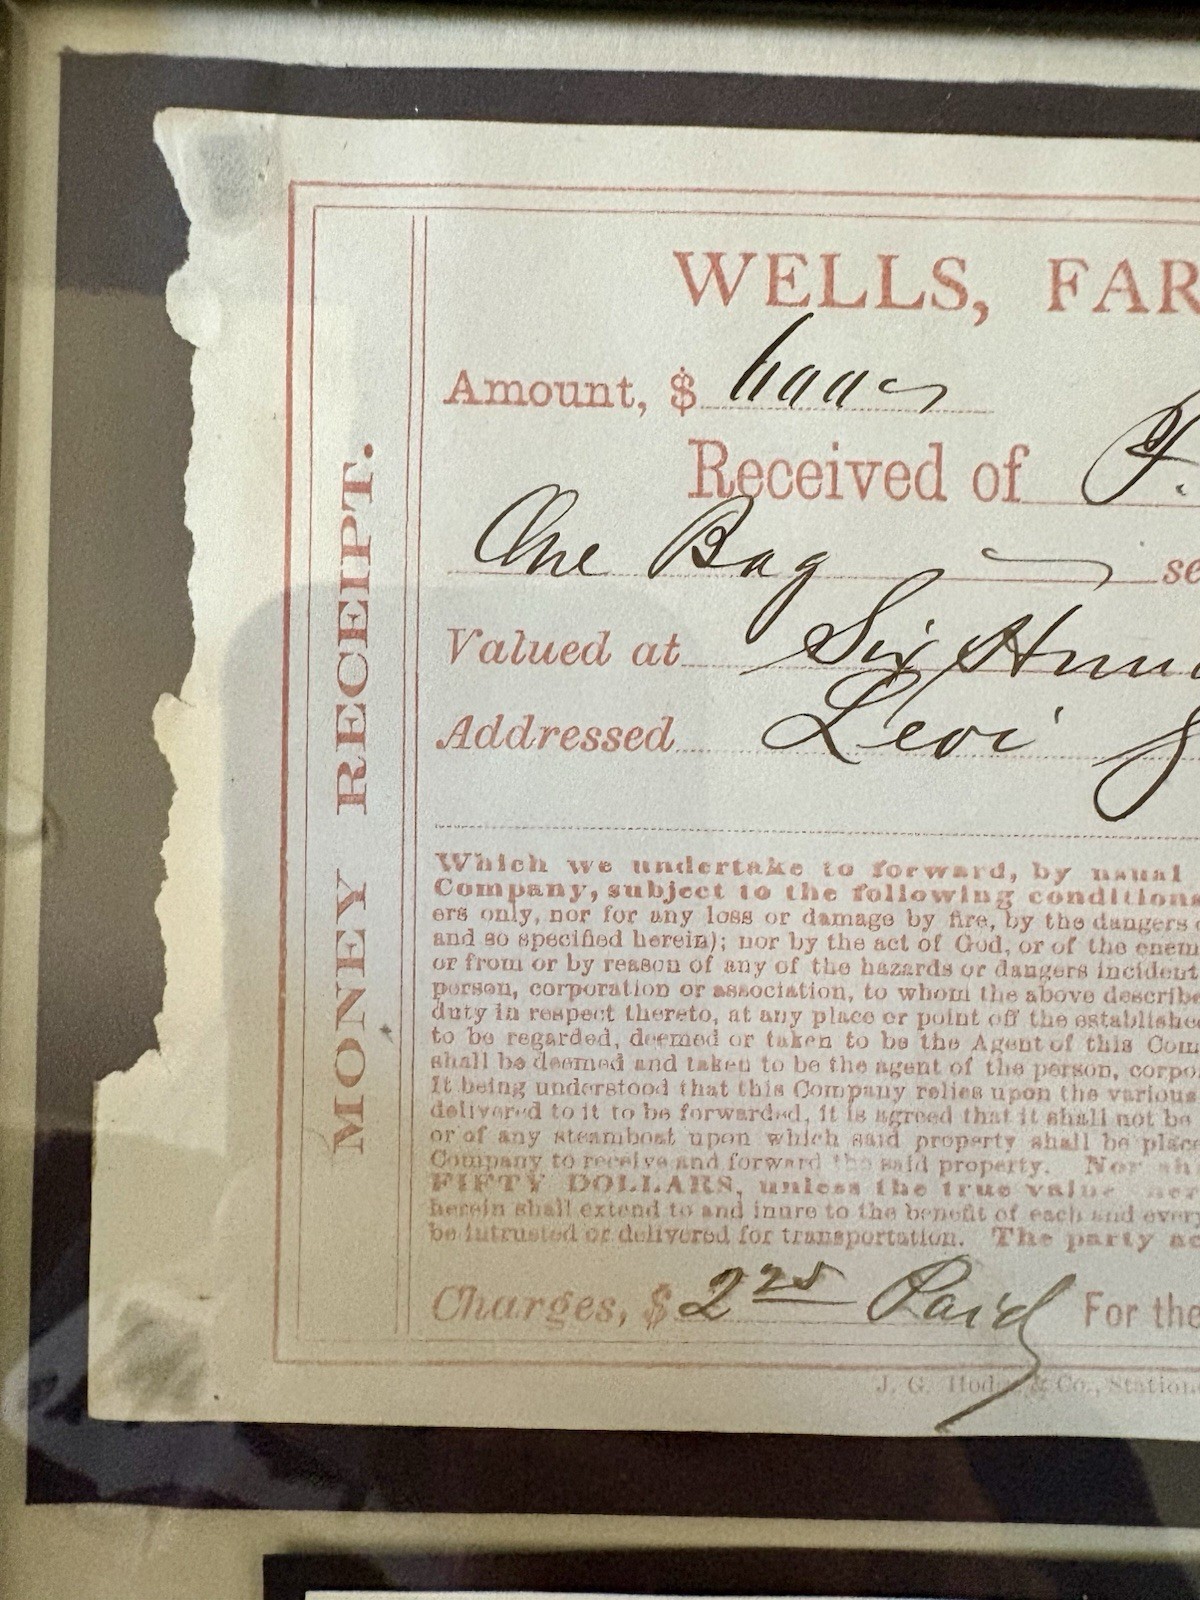 WELLS, FAR
Amount, $ 600
Received of F.
One Bag se
Valued at Six Hun
Addressed Levi S
MONEY RECEIPT.
Which we undertake to forward, by usual
Company, subject to the following conditions
ers only, nor for any loss or damage by fire, by the dangers
and so specified herein); nor by the act of God, or of the enem
or from or by reason of any of the hazards or dangers incident
person, corporation or association, to whom the above describe
duty in respect thereto, at any place or point off the establishe
to be regarded, deemed or taken to be the Agent of this Com
shall be deemed and taken to be the agent of the person, corpo
It being understood that this Company relies upon the various
delivered to it to be forwarded, it is agreed that it shall not be
or of any steamboat upon which said property shall be place
Company to receive and forward the said property. Nor sh
FIFTY DOLLARS, unless the true value her
herein shall extend to and inure to the benefit of each and every
be intrusted or delivered for transportation. The party ac
Charges, $ 2 25 Paid For the
J. G. Hodge & Co., Station